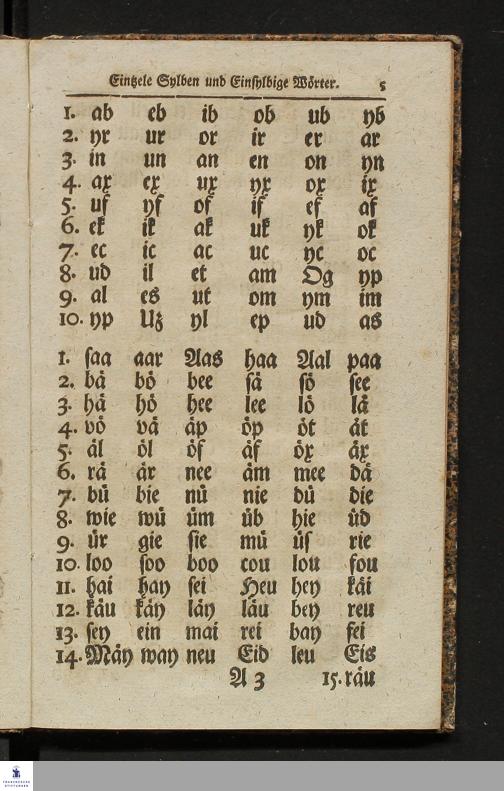 Eintzele Sylben und Einsylbige Wörter. 5
1. ab eb ib ob ub yb
2. yr ur or ir er ar
3. in un an en on yn
4. ax ex ux yx ox ix
5. uf yf of if ef af
6. ek ik ak uk yk ok
7. ec ic ac uc yc oc
8. ud il et am Og yp
9. al es ut om ym im
10. yp Utz yl ep ud as
1. saa aar Aas haa Aal paa
2. bä bö bee sä sö see
3. hä hö hee lee lö lä
4. vö vä äp öp öt ät
5. äl öl öf äf öx äx
6. rä är nee äm mee dä
7. bü bie nü nie dü die
8. wie wü üm üb hie üd
9. ür gie sie mü üs rie
10. loo soo boo cou lou fou
11. hai hay sei Heu hey käi
12. käu käy läy läu bey reu
13. sey ein mai rei bay fei
14. Mäy way neu Eid leu Eis
A 3 15. räu
FRANCKESCHE
STIFTUNGEN